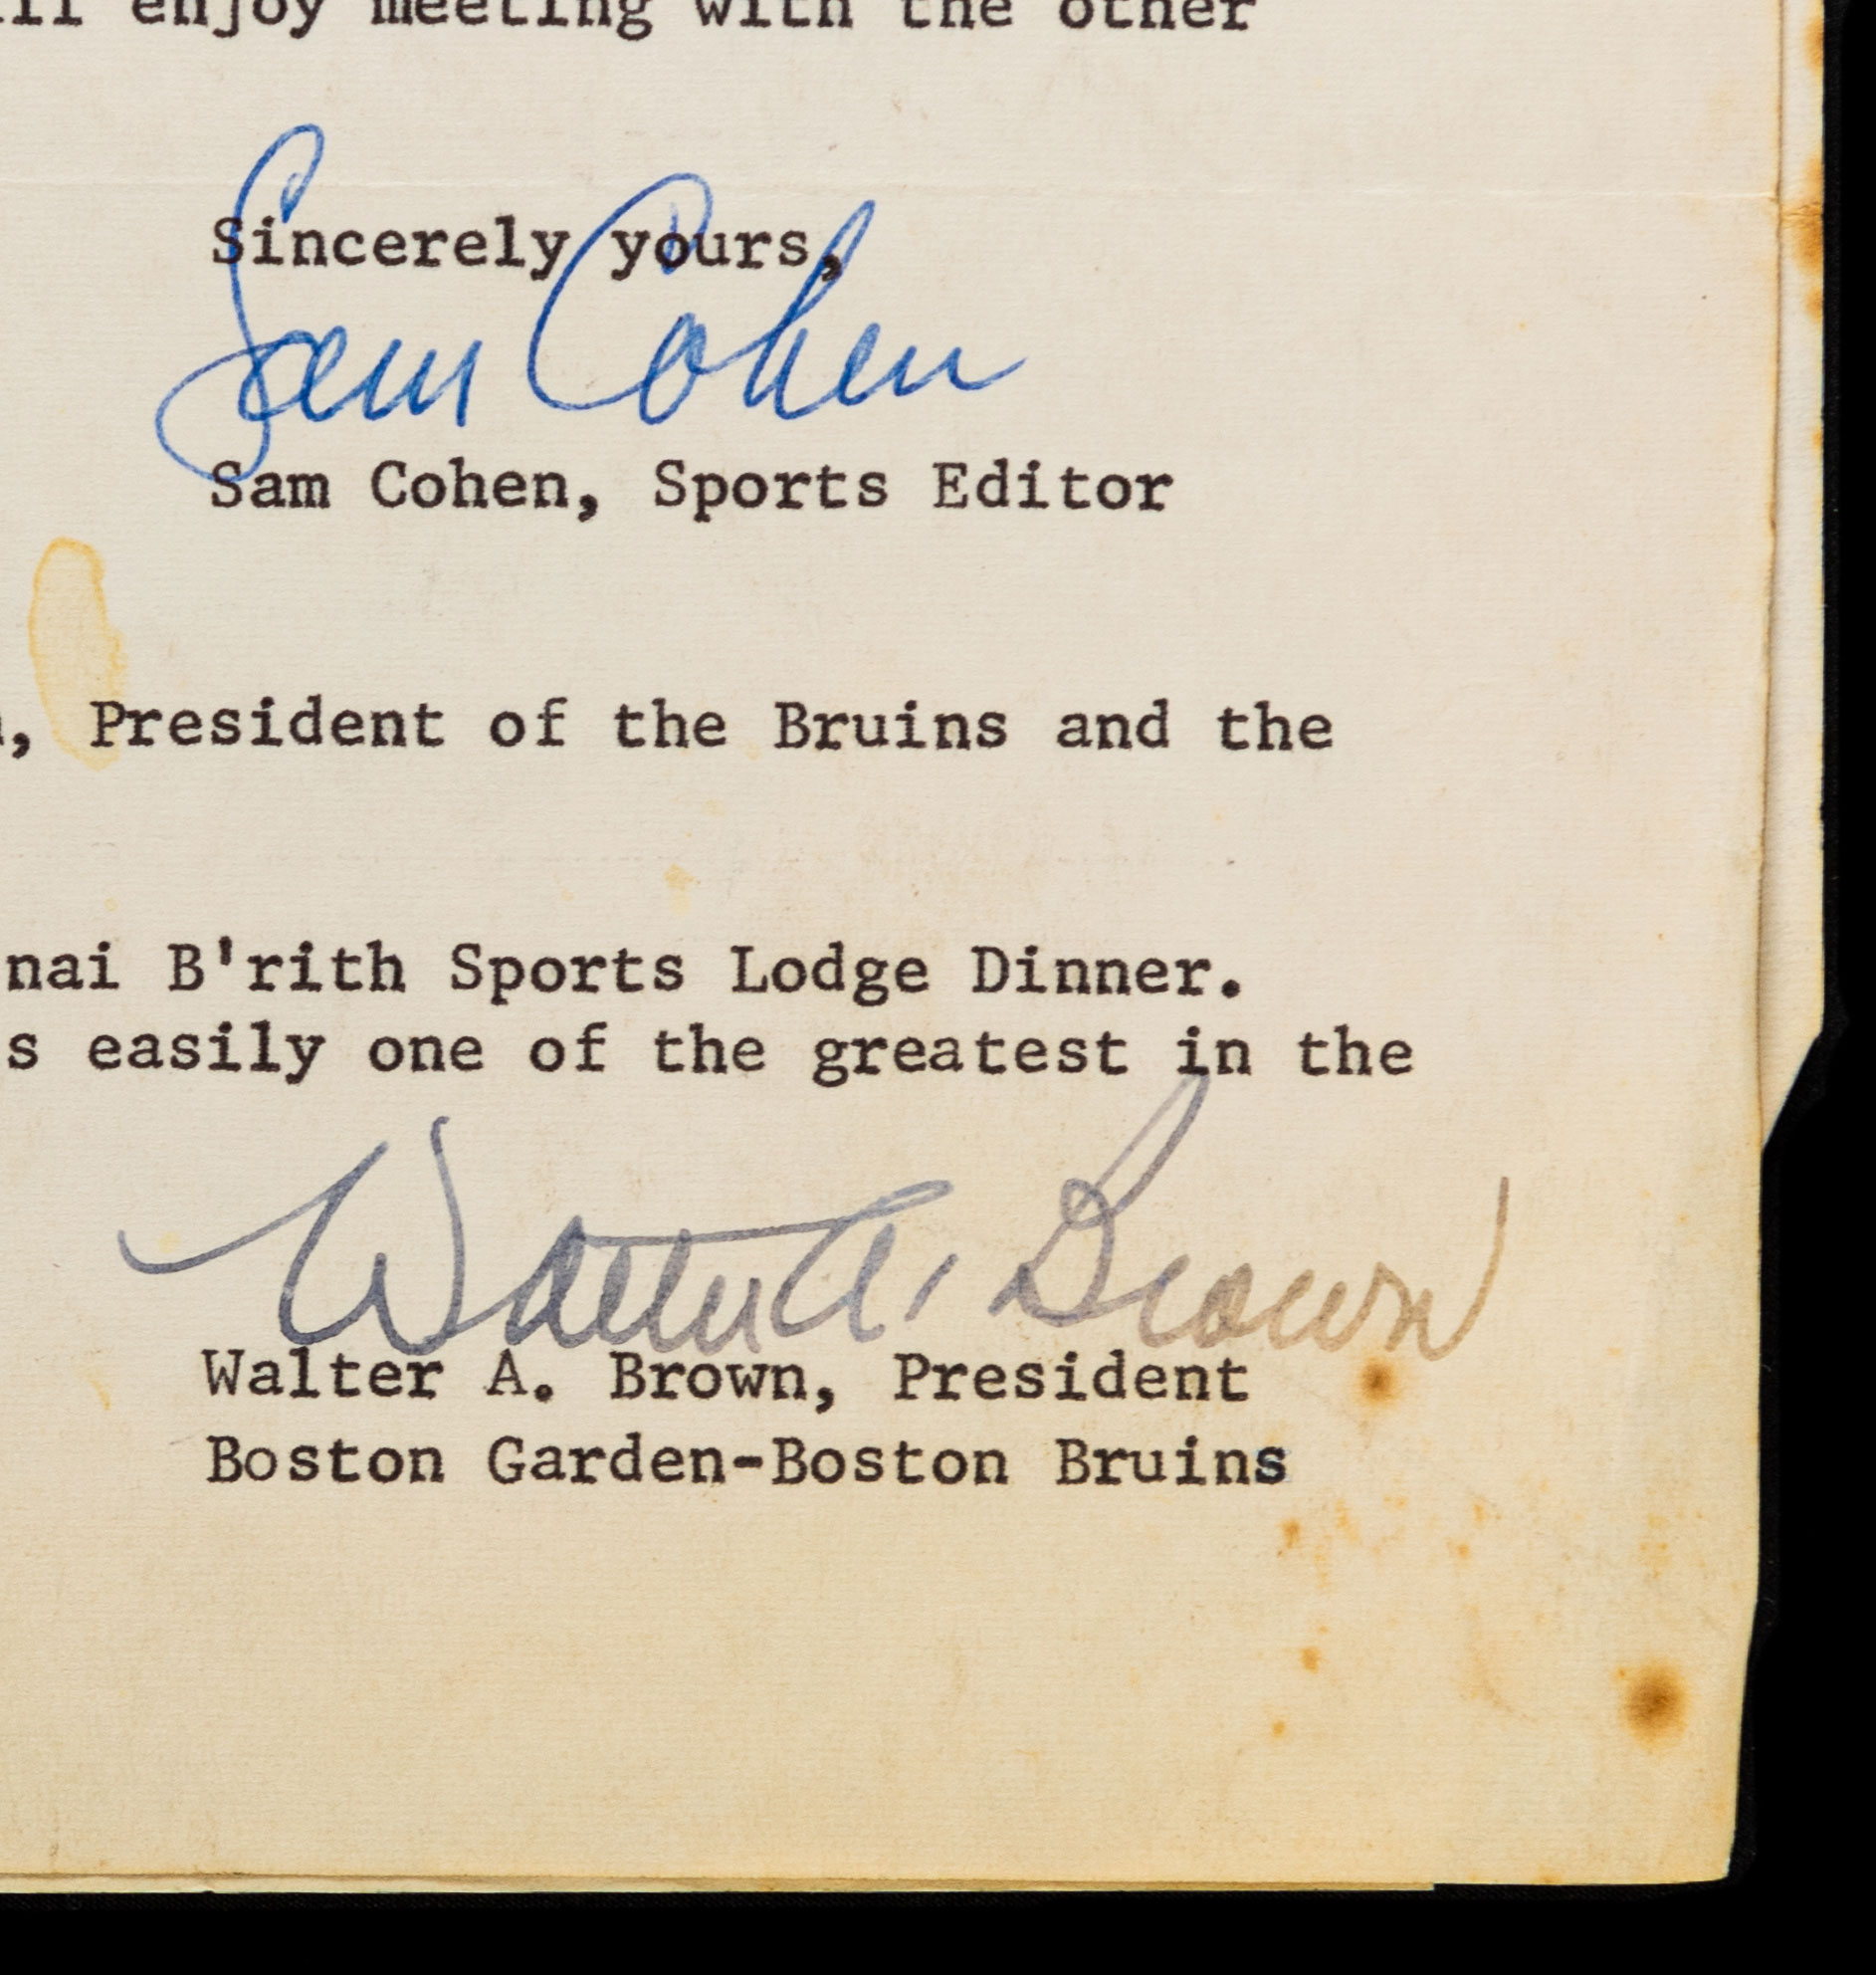 enjoy meeting with the other
Sincerely yours,
Sam Cohen
Sam Cohen, Sports Editor
, President of the Bruins and the
nai B'rith Sports Lodge Dinner.
s easily one of the greatest in the
Walter A. Brown
Walter A. Brown, President
Boston Garden-Boston Bruins